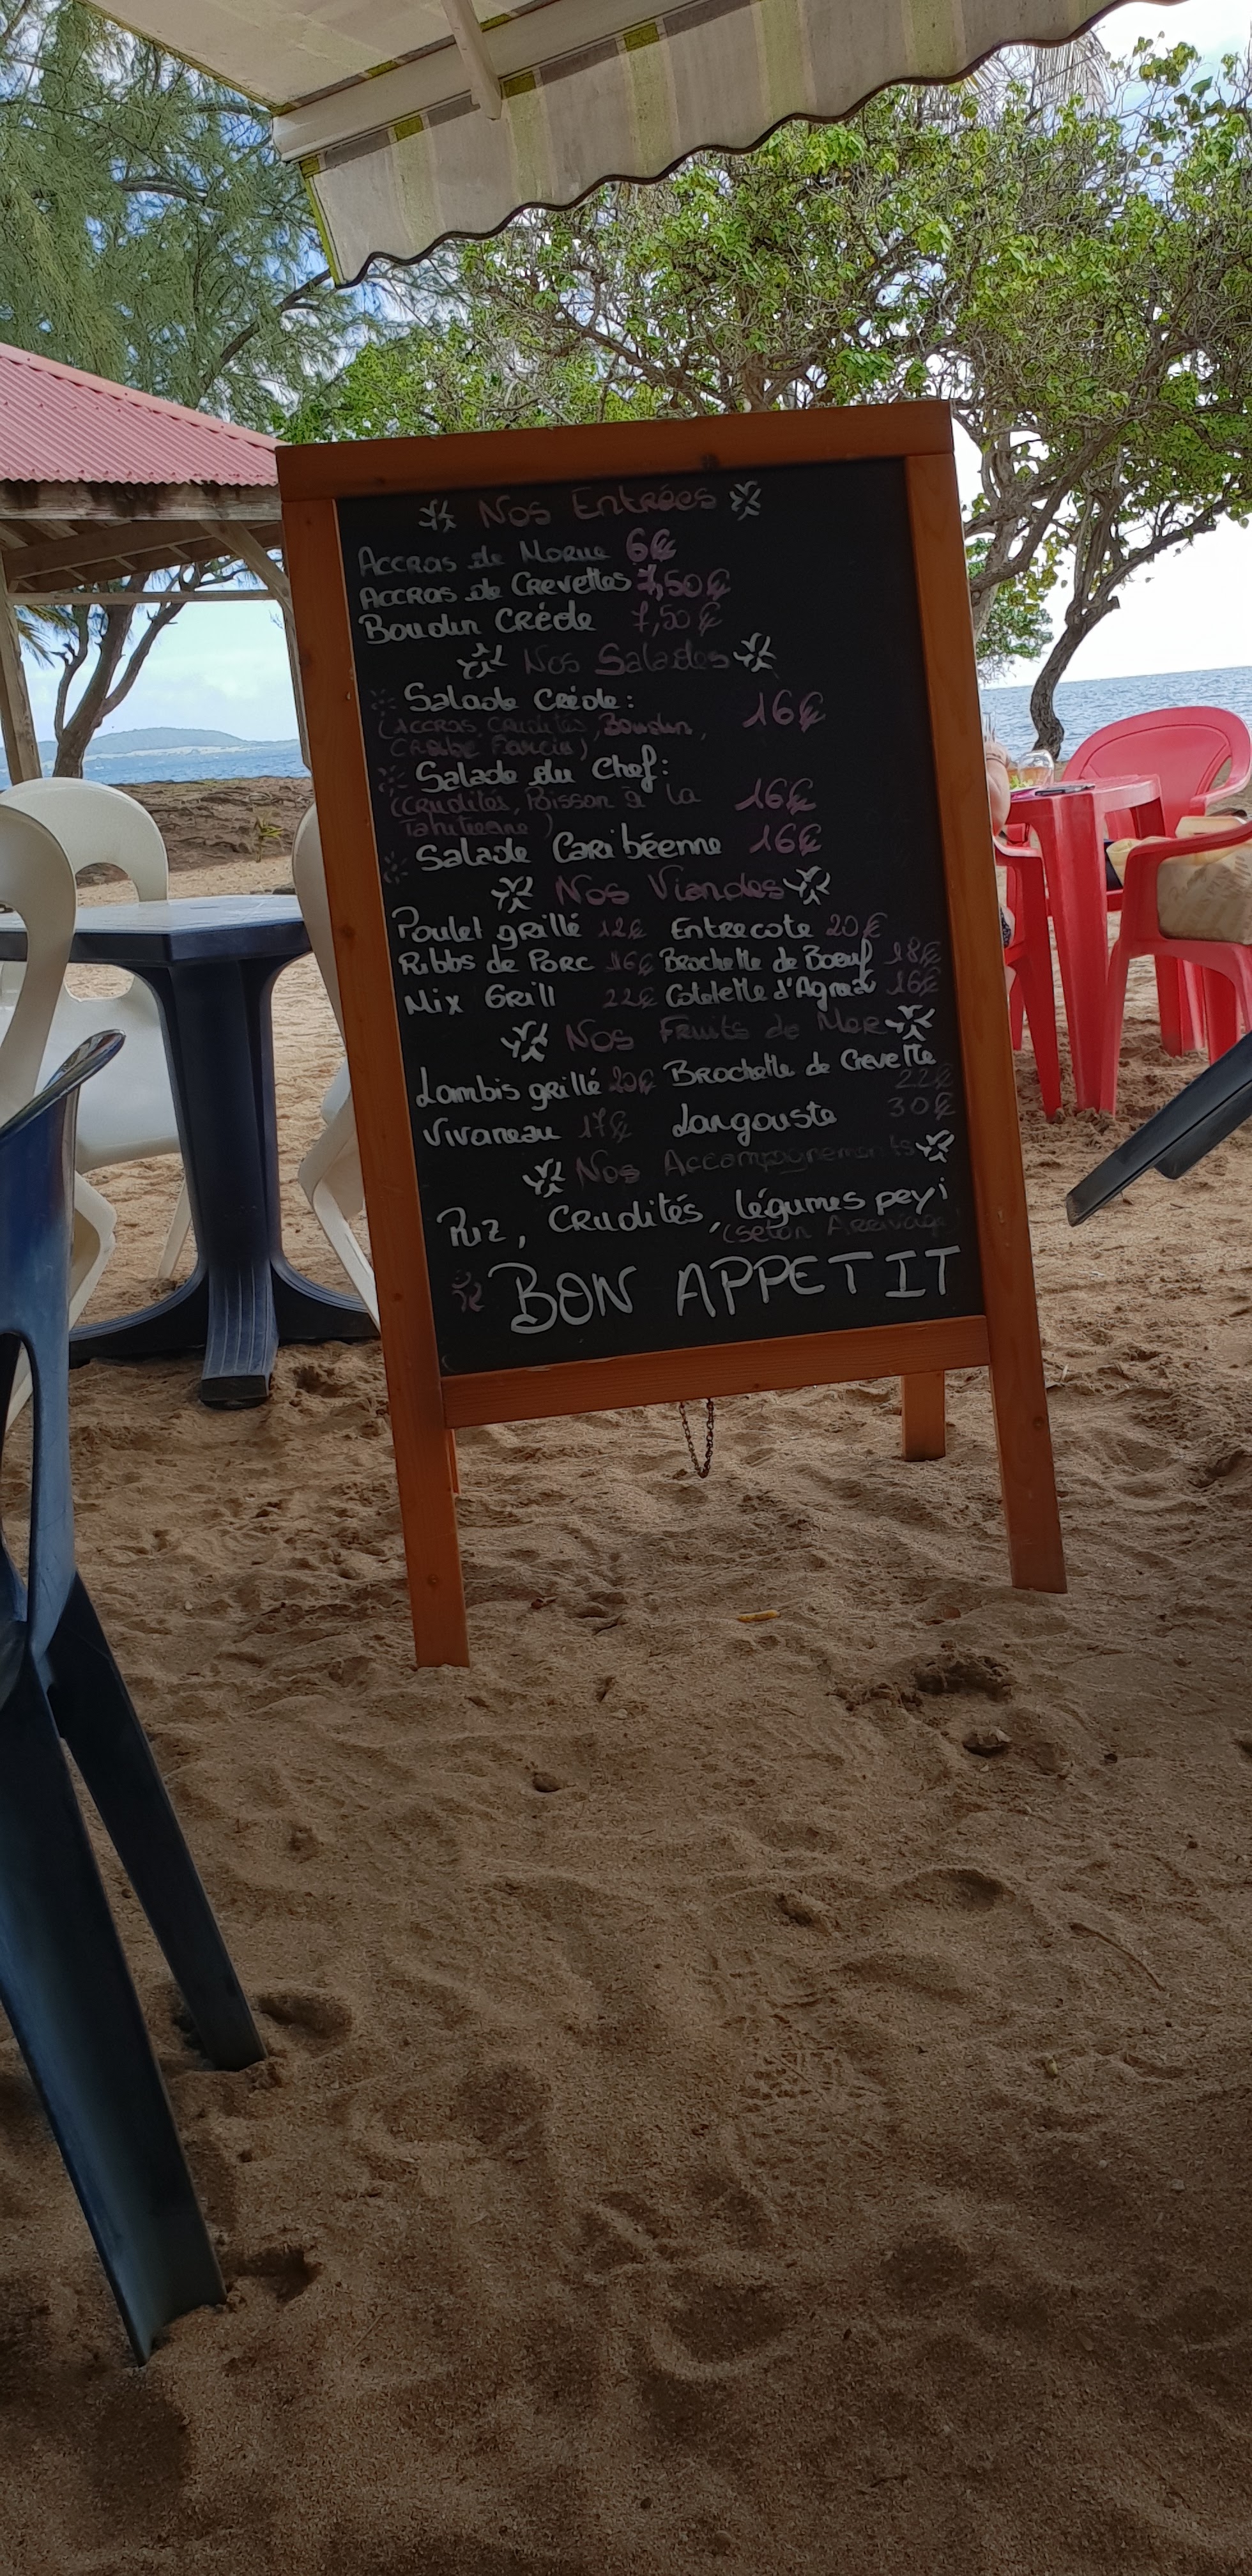 Nos Entrées
Accras de Morue 6€
Accras de Crevettes 7,50€
Boudin Créole 7,50€
Nos Salades
Salade Créole : 16€
(Accras, Crudités, Boudin,
Crabe Farcie)
Salade du Chef :
(Crudités, Poisson à la 16€
Tahitienne)
Salade Caribéenne 16€
Nos Viandes
Poulet grillé 12€ Entrecote 20€
Ribbs de Porc 16€ Brochette de Boeuf 18€
Mix Grill 22€ Cotelette d'Agneau 16€
Nos Fruits de Mer
Lambis grillé 20€ Brochette de Crevette
22€
Vivaneau 17€ Langouste 30€
Nos Accompagnements
Riz, Crudités, légumes peyi
(selon Arrivage)
BON APPETIT